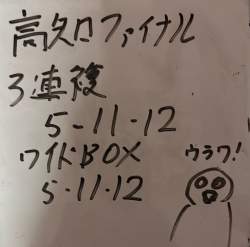 高久口ファイナル
3連複
5-11-12
ワイドBOX
ウラワ!
5・11・12